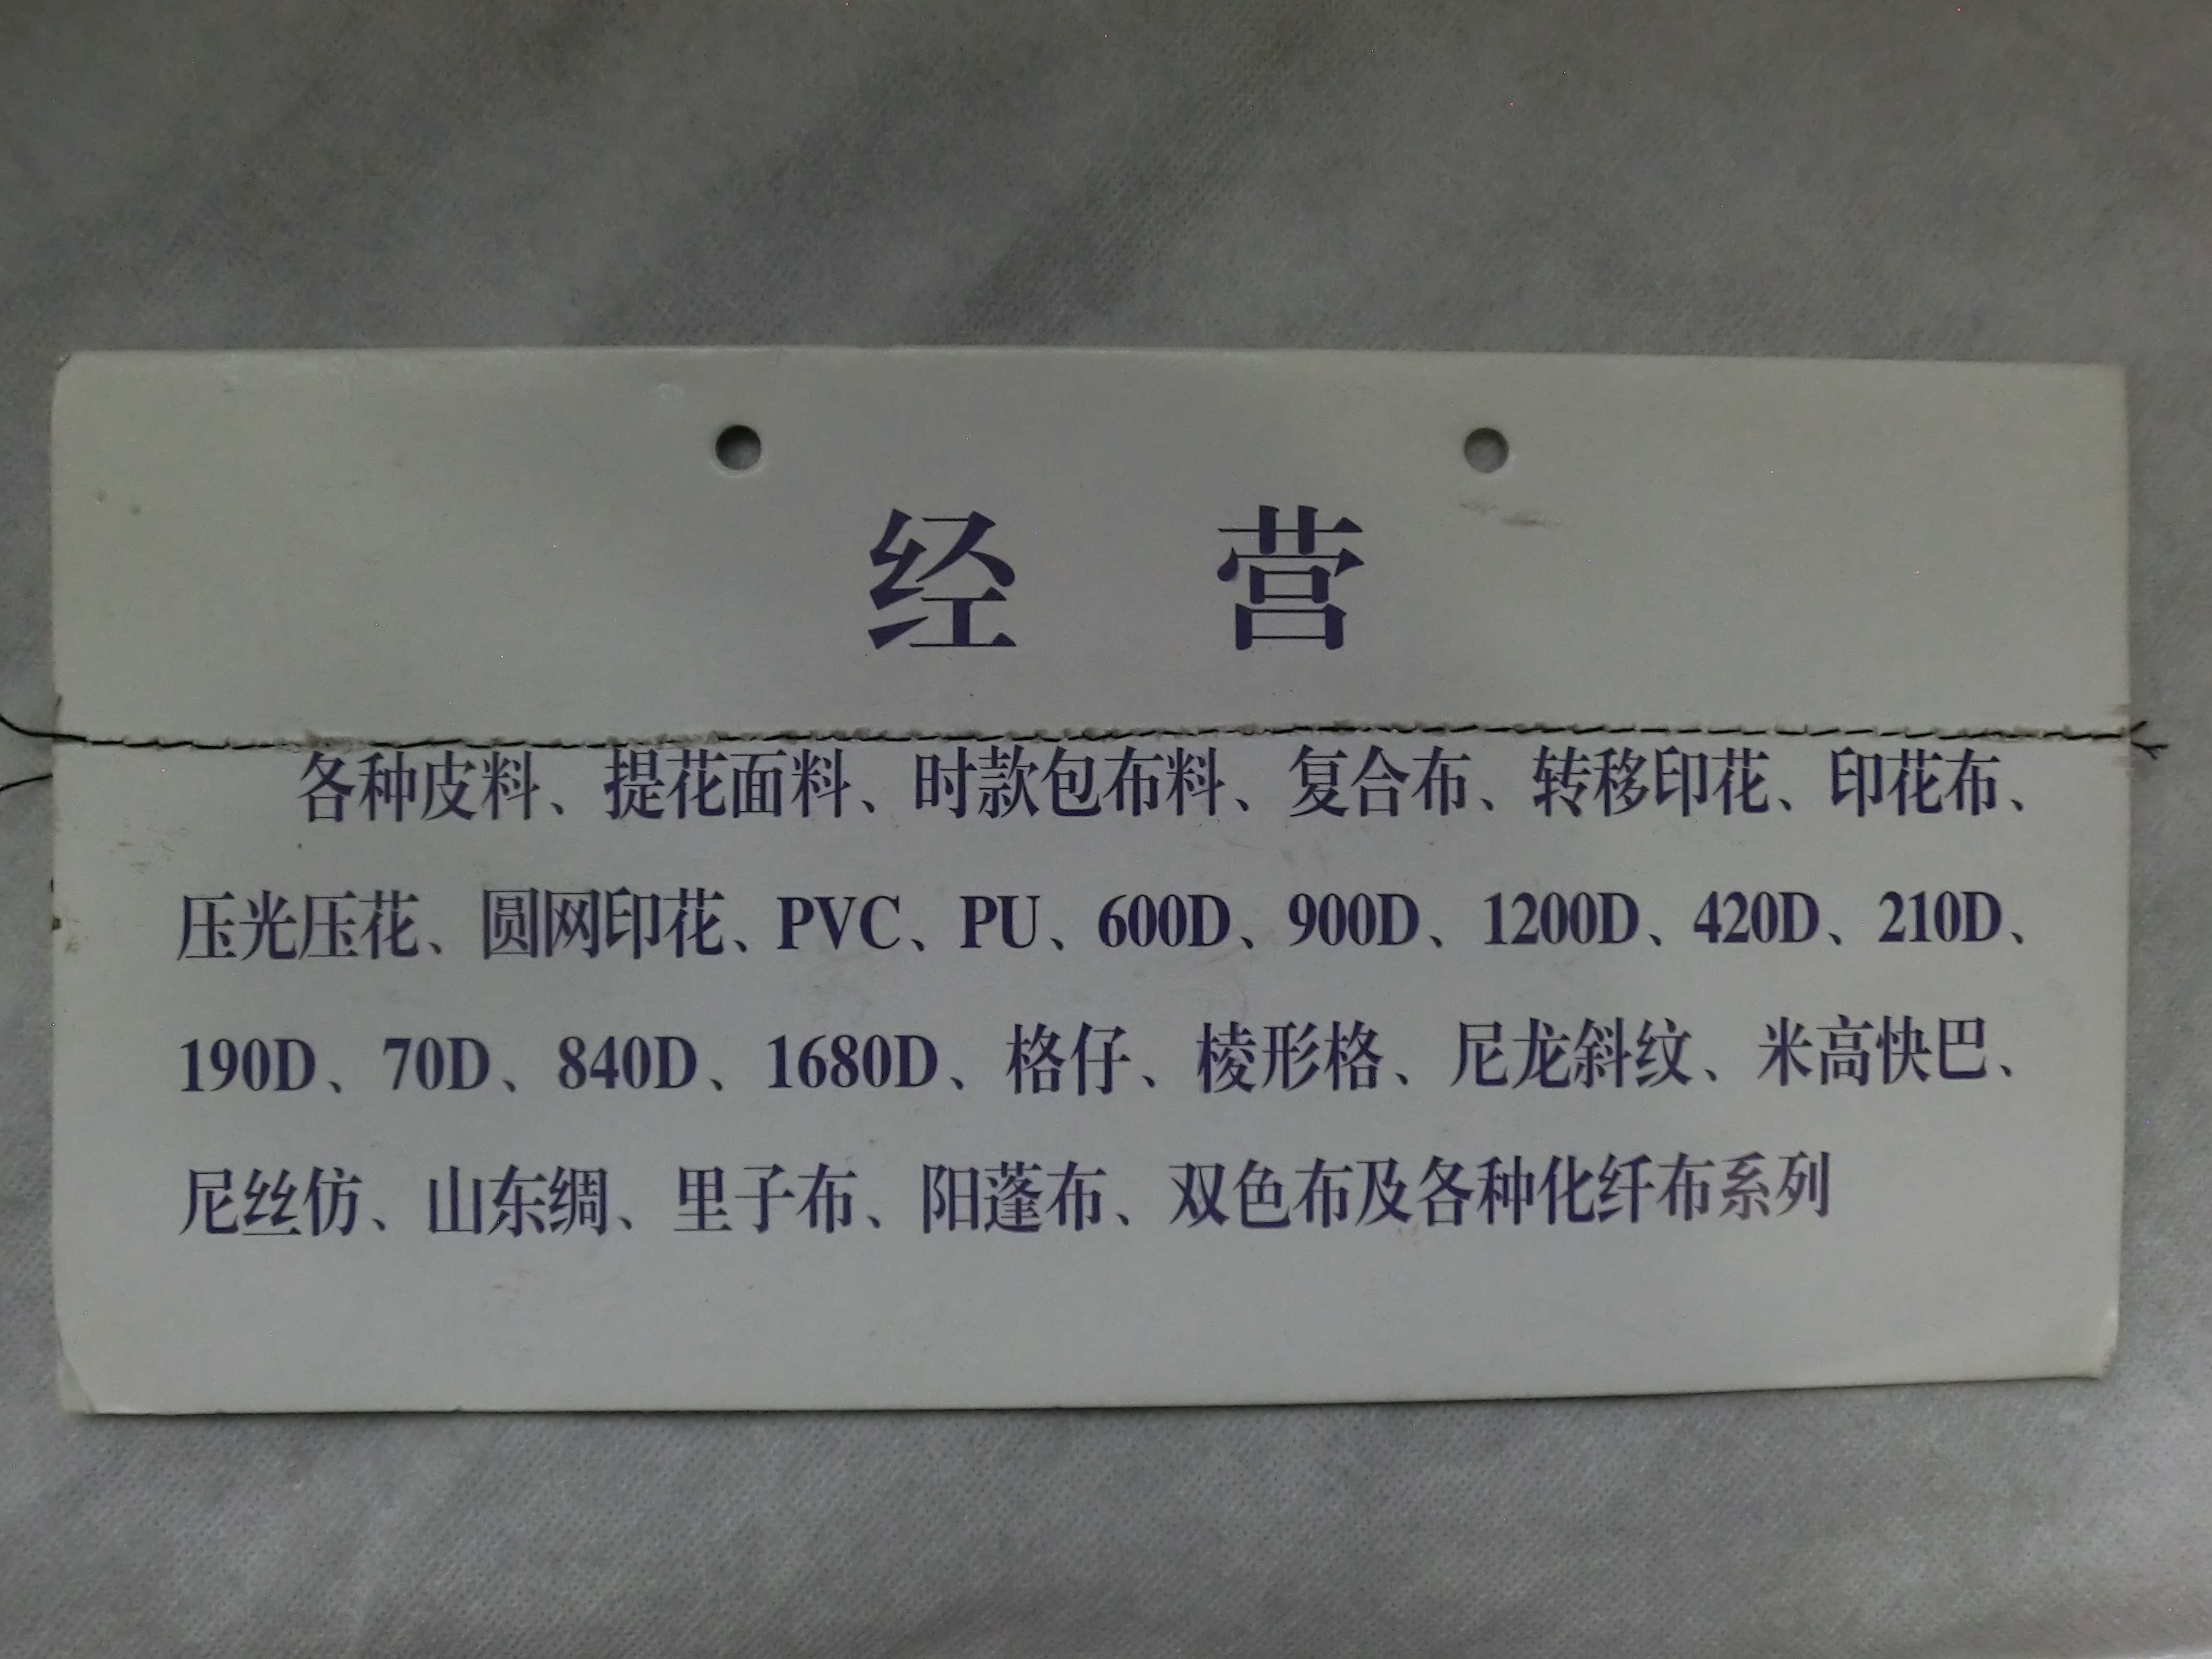 经 营
各种皮料、提花面料、时款包布料、复合布、转移印花、印花布、
压光压花、圆网印花、PVC、PU、600D、900D、1200D、420D、210D、
190D、70D、840D、1680D、格仔、棱形格、尼龙斜纹、米高快巴、
尼丝仿、山东绸、里子布、阳蓬布、双色布及各种化纤布系列